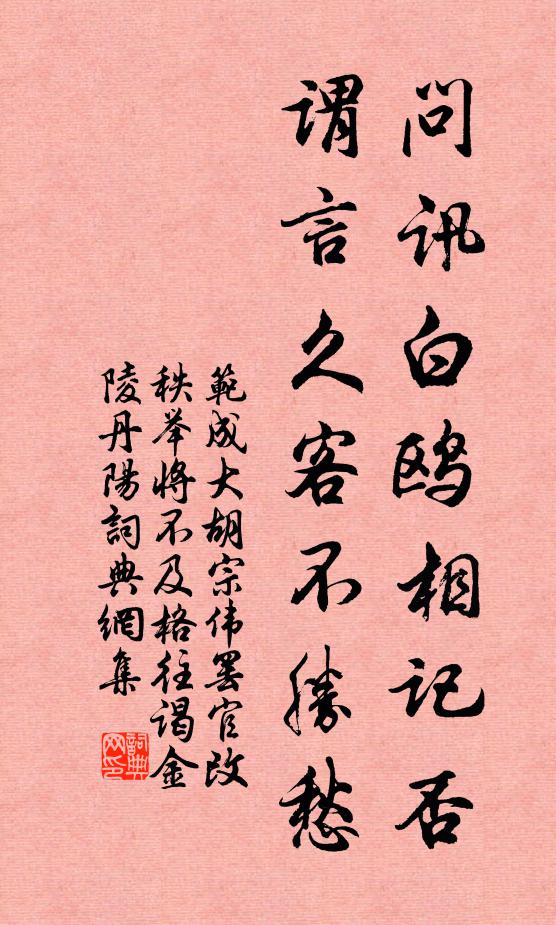 問訊白鸥相记否
謂言久客不勝愁
範成大胡宗伟罢官改
秩举將不及格往谒金
陵丹陽詞典網集
詞典网印